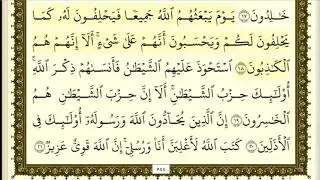 خَٰلِدُونَ ١٧ يَوْمَ يَبْعَثُهُمُ ٱللَّهُ جَمِيعًا فَيَحْلِفُونَ لَهُۥ كَمَا
يَحْلِفُونَ لَكُمْ وَيَحْسَبُونَ أَنَّهُمْ عَلَىٰ شَىْءٍ أَلَآ إِنَّهُمْ هُمُ
ٱلْكَٰذِبُونَ ١٨ ٱسْتَحْوَذَ عَلَيْهِمُ ٱلشَّيْطَٰنُ فَأَنسَىٰهُمْ ذِكْرَ ٱللَّهِ
أُو۟لَٰٓئِكَ حِزْبُ ٱلشَّيْطَٰنِ أَلَآ إِنَّ حِزْبَ ٱلشَّيْطَٰنِ هُمُ
ٱلْخَٰسِرُونَ ١٩ إِنَّ ٱلَّذِينَ يُحَآدُّونَ ٱللَّهَ وَرَسُولَهُۥٓ أُو۟لَٰٓئِكَ فِى
ٱلْأَذَلِّينَ ٢٠ كَتَبَ ٱللَّهُ لَأَغْلِبَنَّ أَنَا۠ وَرُسُلِىٓ إِنَّ ٱللَّهَ قَوِىٌّ عَزِيزٌ ٢١